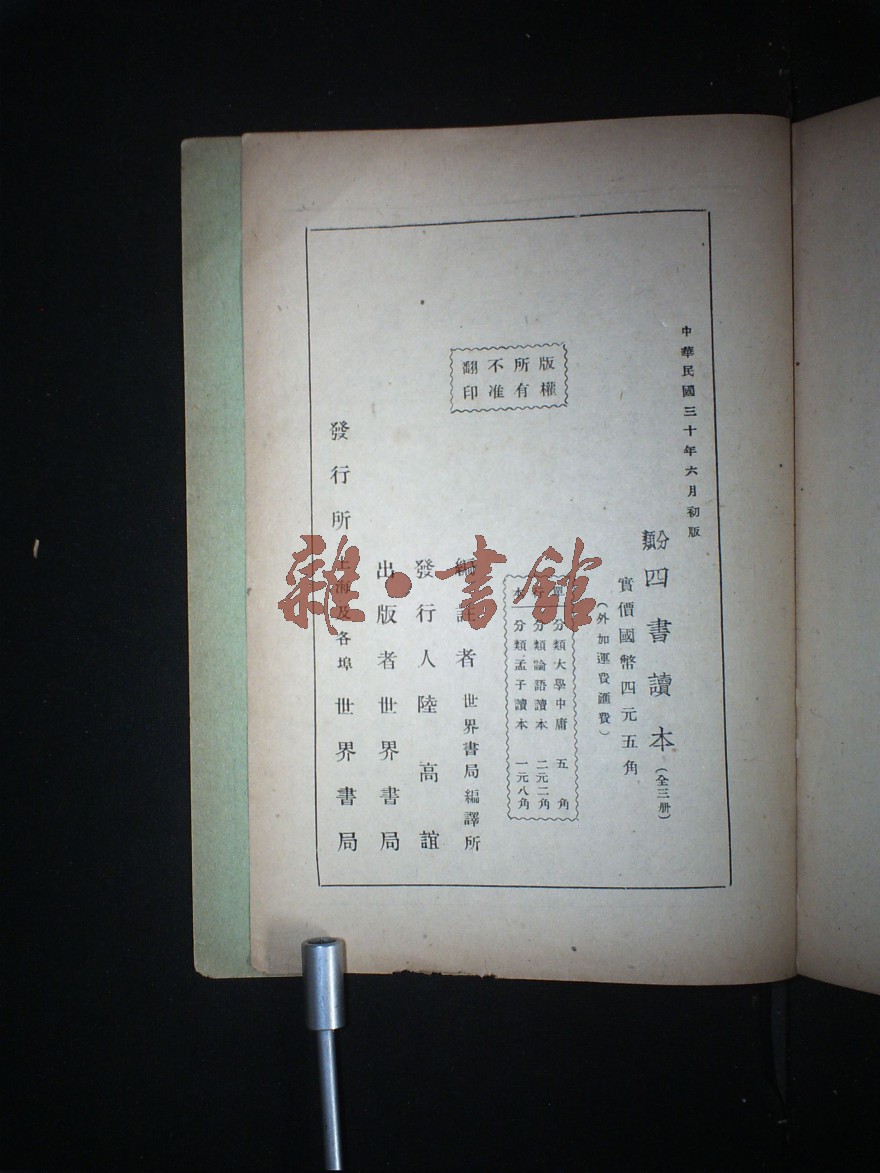 中華民國三十年六月初版
分類四書讀本(全三册)
實價國幣四元五角
(外加運費匯費)
單行本
分類大學中庸 五角
分類論語讀本 二元二角
分類孟子讀本 一元八角
版權所有
不准翻印
編註者 世界書局編譯所
發行人 陸高誼
出版者 世界書局
發行所 上海及各埠 世界書局
雜·書館